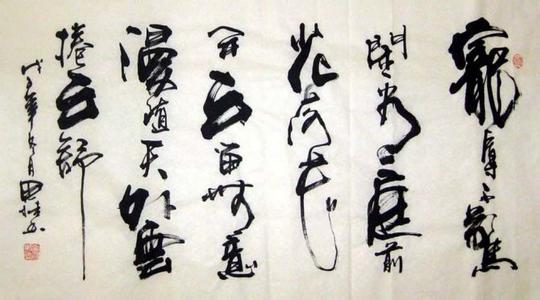 寵辱不驚
閑看庭前
花開花
落去留無意
漫隨天外雲
捲云舒
戊子年冬月